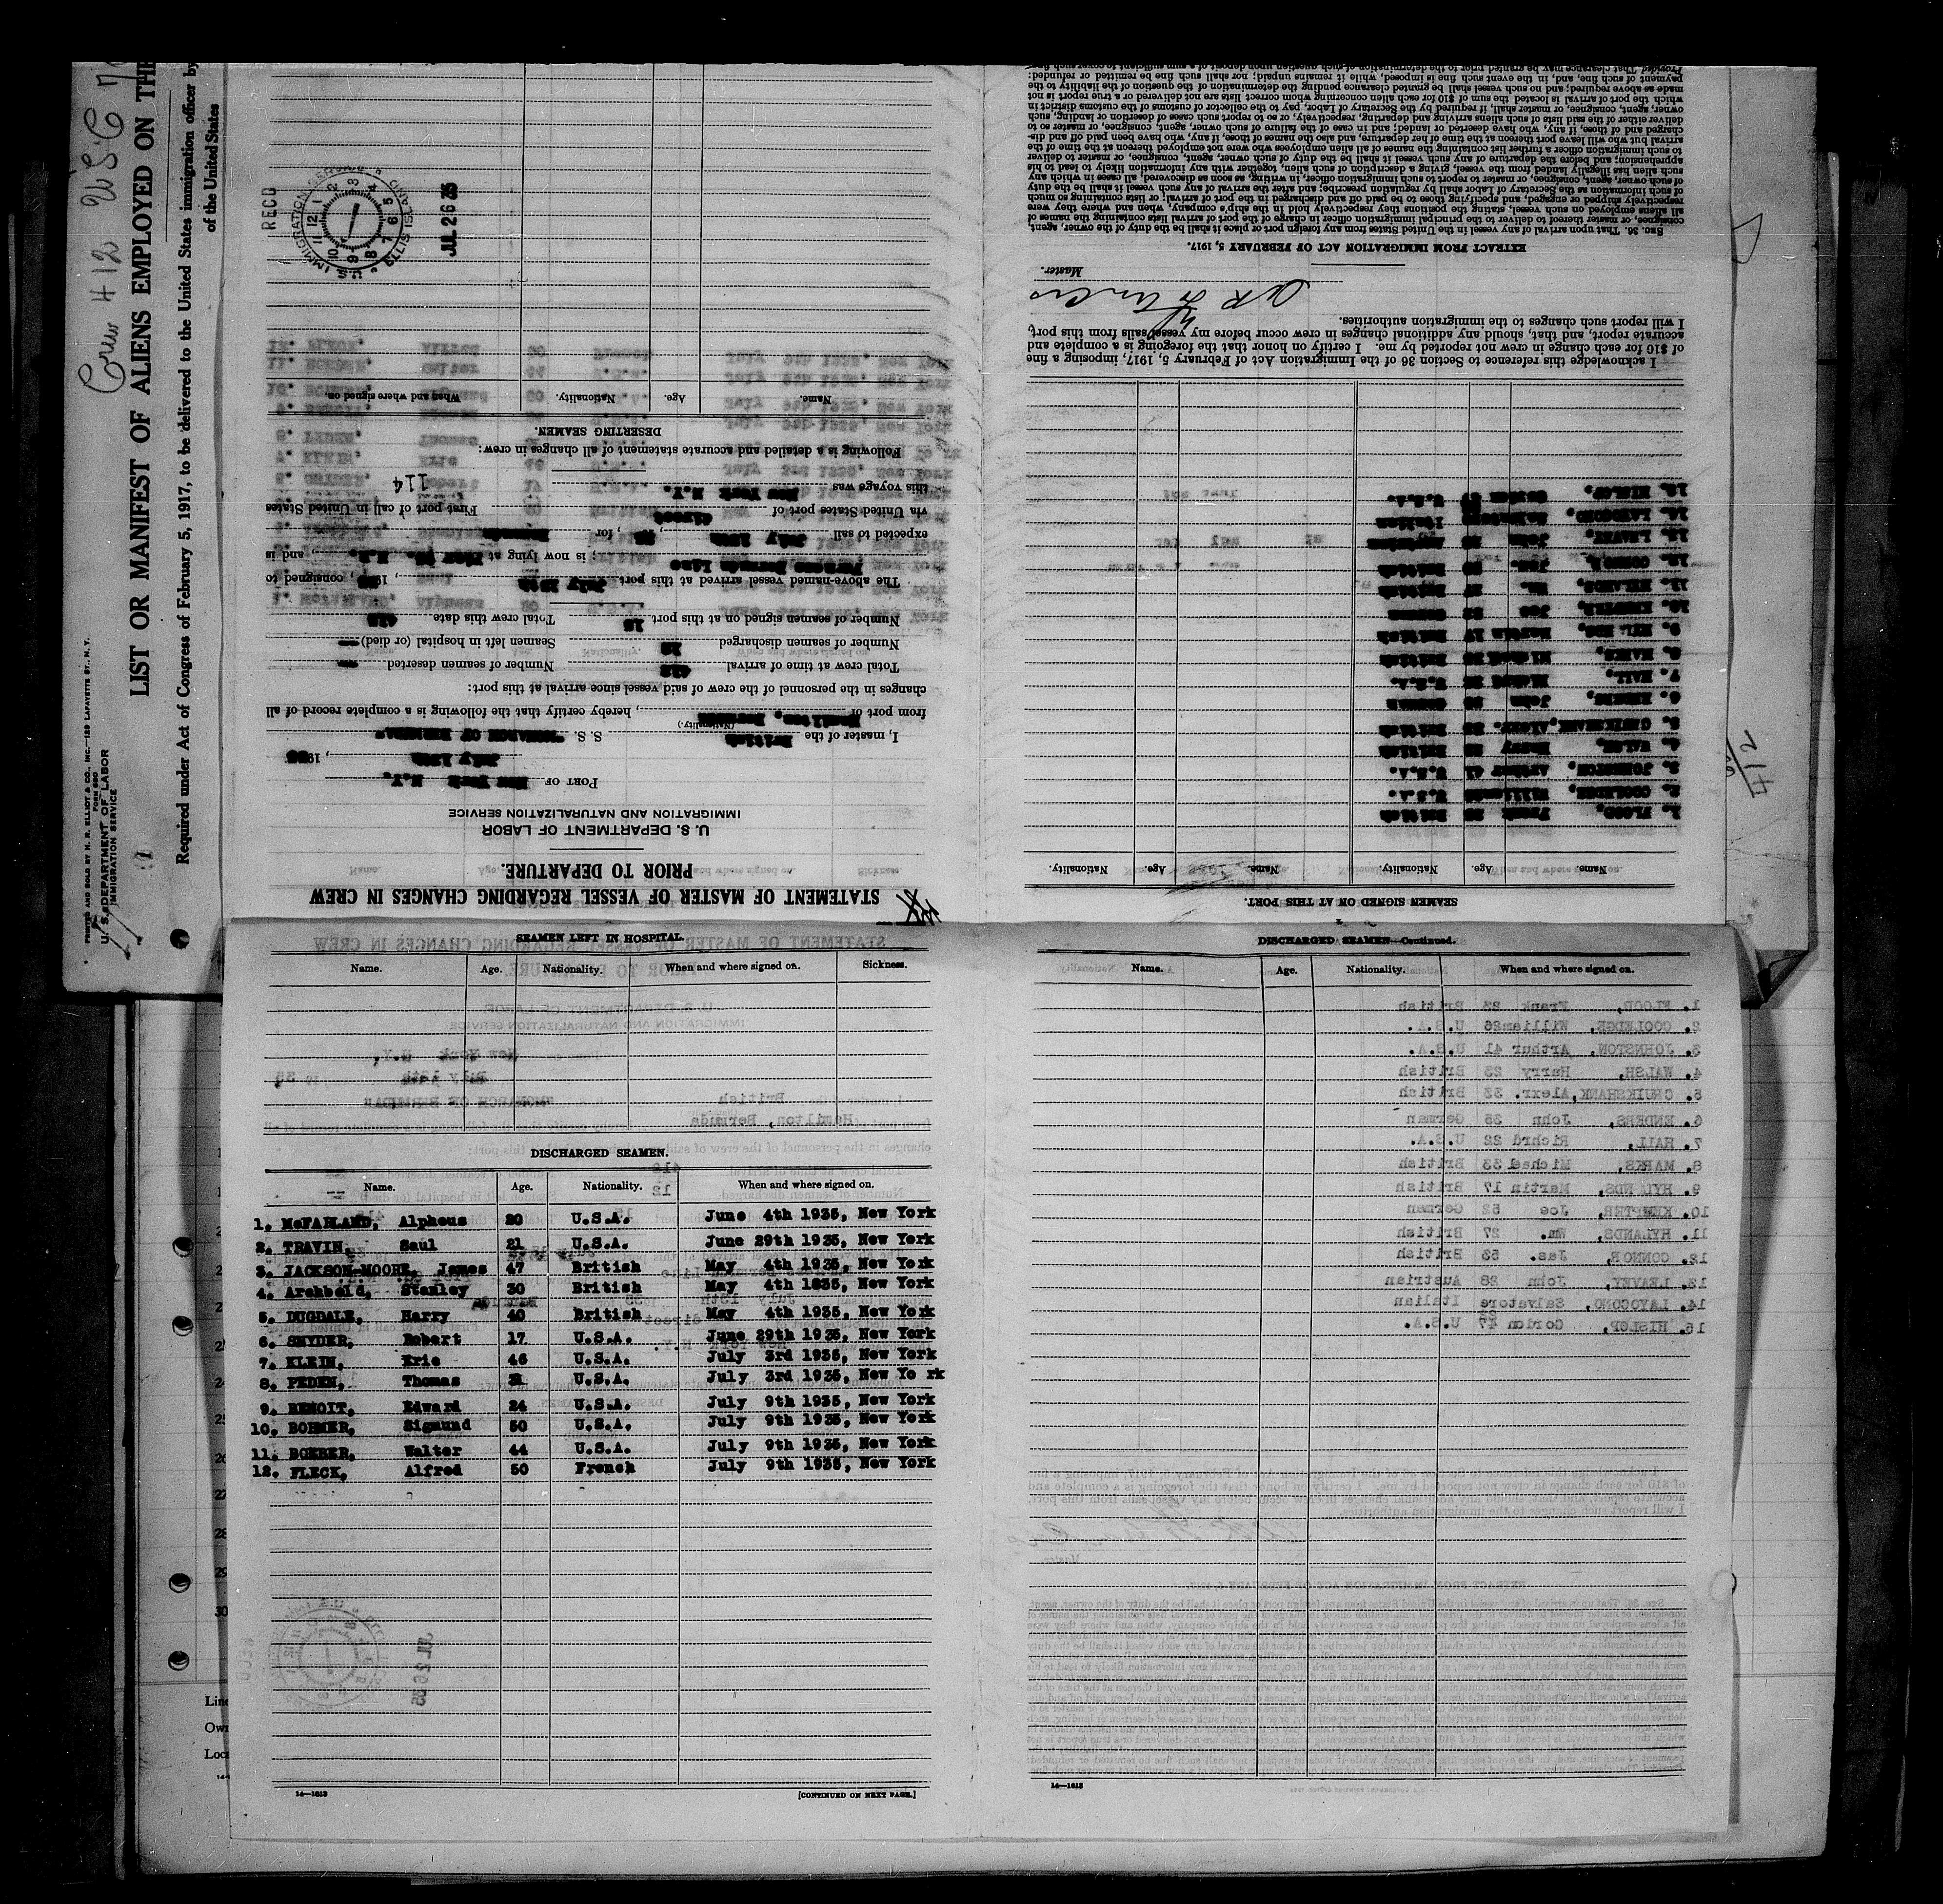 Crew 412
PRINTED AND SOLD BY M. R. ELLIOT & CO., INC.—129 LAFAYETTE ST., N. Y.
FORM 680
U. S. DEPARTMENT OF LABOR
IMMIGRATION SERVICE
LIST OR MANIFEST OF ALIENS EMPLOYED ON THE
Required under Act of Congress of February 5, 1917, to be delivered to the United States immigration officer by
of the United States
STATEMENT OF MASTER OF VESSEL REGARDING CHANGES IN CREW
PRIOR TO DEPARTURE.
U. S. DEPARTMENT OF LABOR
IMMIGRATION AND NATURALIZATION SERVICE
PORT OF New York N.Y.
July 13th, 1935
I, master of the British S. S. "MONARCH OF BERMUDA"
(Nationality.)
from port of Hamilton, Bermuda, hereby certify that the following is a complete record of all
changes in the personnel of the crew of said vessel since arrival at this port:
Total crew at time of arrival 412 Number of seamen deserted --
Number of seamen discharged 12 Seamen left in hospital (or died) --
Number of seamen signed on at this port 15 Total crew this date 415
The above-named vessel arrived at this port July, 1935, consigned to
Furness Bermuda Line; is now lying at Pier N.R., and is
expected to sail July 13th, 35, for Bermuda
via United States port of direct First port of call in United States
this voyage was New York N.Y. 114
Following is a detailed and accurate statement of all changes in crew:
DESERTING SEAMEN.
Name. Age. Nationality. When and where signed on.
RECD
U.S. IMMIGRATION SERVICE
ELLIS ISLAND
JUL 26 35
SEAMEN SIGNED ON AT THIS PORT.
Name. Age. Nationality. Name. Age. Nationality.
1. FLOOD, Frank 23 British
2. COOLEDGE, William 26 U.S.A.
3. JOHNSTON, Arthur 41 U.S.A.
4. WALSH, Harry 23 British
5. CRUIKSHANK, Alexr. 33 British
6. ENDERS, John 35 German
7. HALL, Richrd 22 U.S.A.
8. MARKS, Michael 33 British
9. HYLANDS, Martin 17 British
10. KEMPTER, Joe 52 German
11. HYLANDS, Wm. 27 British
12. CONNOR, Jas. 53 British
13. LEAVEY, John 28 Austrian
14. LAYOCONO, Salvatore Italian
15. HISLOP, Gorion 47 U.S.A.
I acknowledge this reference to Section 36 of the Immigration Act of February 5, 1917, imposing a fine
of $10 for each change in crew not reported by me. I certify on honor that the foregoing is a complete and
accurate report, and that, should any additional changes in crew occur before my vessel sails from this port,
I will report such changes to the immigration authorities.
Master.
EXTRACT FROM IMMIGRATION ACT OF FEBRUARY 5, 1917.
SEC. 36. That upon arrival of any vessel in the United States from any foreign port or place it shall be the duty of the owner, agent,
consignee, or master thereof to deliver to the principal immigration officer in charge of the port of arrival lists containing the names of
all aliens employed on such vessel, stating the positions they respectively hold in the ship's company, when and where they were
respectively shipped or engaged, and specifying those to be paid off and discharged in the port of arrival; or lists containing so much
of such information as the Secretary of Labor shall by regulation prescribe; and after the arrival of any such vessel it shall be the duty
of such owner, agent, consignee, or master to report to such immigration officer, in writing, as soon as discovered, all cases in which any
such alien has illegally landed from the vessel, giving a description of such alien, together with any information likely to lead to his
apprehension; and before the departure of any such vessel it shall be the duty of such owner, agent, consignee, or master to deliver
to such immigration officer a further list containing the names of all alien employees who were not employed thereon at the time of the
arrival but who will leave port thereon at the time of her departure, and also the names of those, if any, who have been paid off and dis-
charged and of those, if any, who have deserted or landed; and in case of the failure of such owner, agent, consignee, or master so to
deliver either of the said lists of such aliens arriving and departing, respectively, or so to report such cases of desertion or landing, such
owner, agent, consignee, or master shall, if required by the Secretary of Labor, pay to the collector of customs of the customs district in
which the port of arrival is located the sum of $10 for each alien concerning whom correct lists are not delivered or a true report is not
made as above required; and no such vessel shall be granted clearance pending the determination of the question of the liability to the
payment of such fine, and, in the event such fine is imposed, while it remains unpaid; nor shall such fine be remitted or refunded:
Provided, That clearance may be granted prior to the determination of such question upon deposit of a sum sufficient to cover such fine
412
SEAMEN LEFT IN HOSPITAL.
Name. Age. Nationality. When and where signed on. Sickness.
DISCHARGED SEAMEN.
Name. Age. Nationality. When and where signed on.
1. McFARLAND, Alpheus 20 U.S.A. June 4th 1935, New York
2. TRAVIN, Saul 21 U.S.A. June 29th 1935, New York
3. JACKSON-MOORE, James 47 British May 4th 1935, New York
4. Archbold, Stanley 30 British May 4th 1835, New York
5. DUGDALE, Harry 40 British May 4th 1935, New York
6. SNYDER, Robert 17 U.S.A. June 29th 1935, New York
7. KLEIN, Eric 46 U.S.A. July 3rd 1935, New York
8. PEDEN, Thomas 21 U.S.A. July 3rd 1935, New Yo rk
9. BENOIT, Edward 24 U.S.A. July 9th 1935, New York
10. BOHMER, Sigmund 50 U.S.A. July 9th 1935, New York
11. BOEBER, Walter 44 U.S.A. July 9th 1935, New York
12. FLECK, Alfred 50 French July 9th 1935, New York
14—1613
[CONTINUED ON NEXT PAGE.]
DISCHARGED SEAMEN—Continued.
Name. Age. Nationality. When and where signed on.
14—1613
27
28
29
30